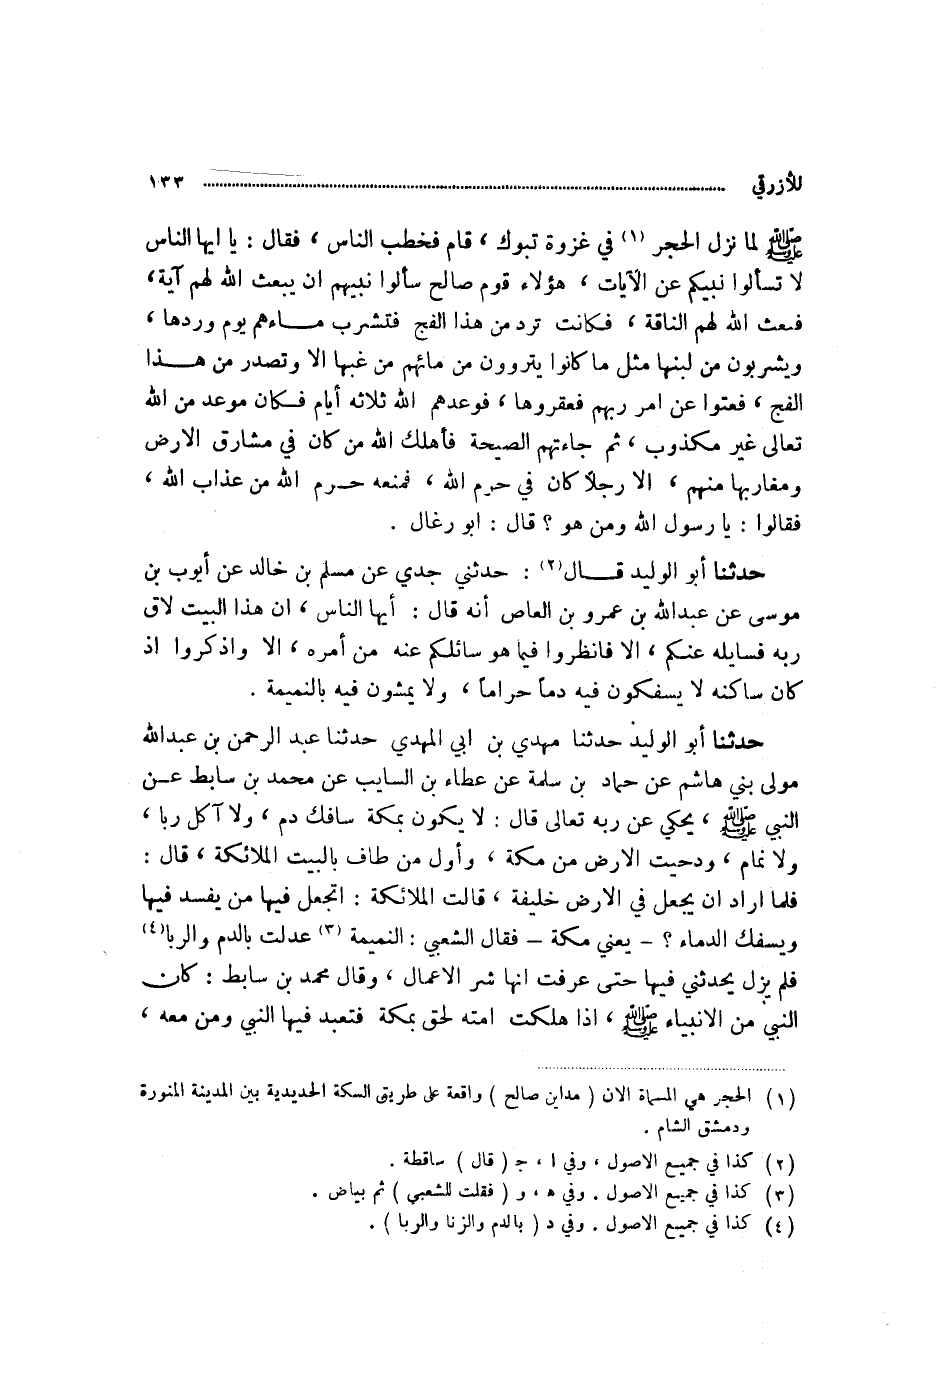 للأزرقي ........ ١٣٣
ﷺ لما نزل الحجر (١) في غزوة تبوك ، قام فخطب الناس ، فقال : يا ايها الناس
لا تسألوا نبيكم عن الآيات ، هؤلاء قوم صالح سألوا نبيهم ان يبعث الله لهم آية ،
فبعث الله لهم الناقة ، فكانت ترد من هذا الفج فتشرب ماءهم يوم وردها ،
ويشربون من لبنها مثل ما كانوا يتروون من مائهم من غبها الا وتصدر من هذا
الفج ، فعتوا عن امر ربهم فعقروها ، فوعدهم الله ثلاثه أيام فكان موعد من الله
تعالى غير مكذوب ، ثم جاءتهم الصيحة فأهلك الله من كان في مشارق الارض
ومغاربها منهم ، الا رجلاً كان في حرم الله ، فمنعه حرم الله من عذاب الله ،
فقالوا : يا رسول الله ومن هو ؟ قال : ابو رغال .
حدثنا أبو الوليد قال (٢) : حدثني جدي عن مسلم بن خالد عن أيوب بن
موسى عن عبدالله بن عمرو بن العاص أنه قال : أيها الناس ، ان هذا البيت لاق
ربه فسايله عنكم ، الا فانظروا فيما هو سائلكم عنه من أمره ، الا واذكروا اذ
كان ساكنه لا يسفكون فيه دماً حراماً ، ولا يمشون فيه بالنميمة .
حدثنا أبو الوليد حدثنا مهدي بن ابي المهدي حدثنا عبد الرحمن بن عبدالله
مولى بني هاشم عن حماد بن سلمة عن عطاء بن السايب عن محمد بن سابط عن
النبي ﷺ ، يحكي عن ربه تعالى قال : لا يكون بمكة سافك دم ، ولا آكل ربا ،
ولا نمام ، ودحيت الارض من مكة ، وأول من طاف بالبيت الملائكة ، قال :
فلما اراد ان يجعل في الارض خليفة ، قالت الملائكة : اتجعل فيها من يفسد فيها
ويسفك الدماء ؟ - يعني مكة - فقال الشعبي : النميمة (٣) عدلت بالدم والربا (٤)
فلم يزل يحدثني فيها حتى عرفت انها شر الاعمال ، وقال محمد بن سابط : كان
النبي من الانبياء ﷺ ، اذا هلكت امته لحق بمكة فتعبد فيها النبي ومن معه ،
(١) الحجر هي المسماة الان ( مداين صالح ) واقعة على طريق السكة الحديدية بين المدينة المنورة
ودمشق الشام .
(٢) كذا في جميع الاصول ، وفي ا ، ج ( قال ) ساقطة .
(٣) كذا في جميع الاصول . وفي ه ، و ( فقلت للشعبي ) ثم بياض .
(٤) كذا في جميع الاصول . وفي د ( بالدم والزنا والربا ) .